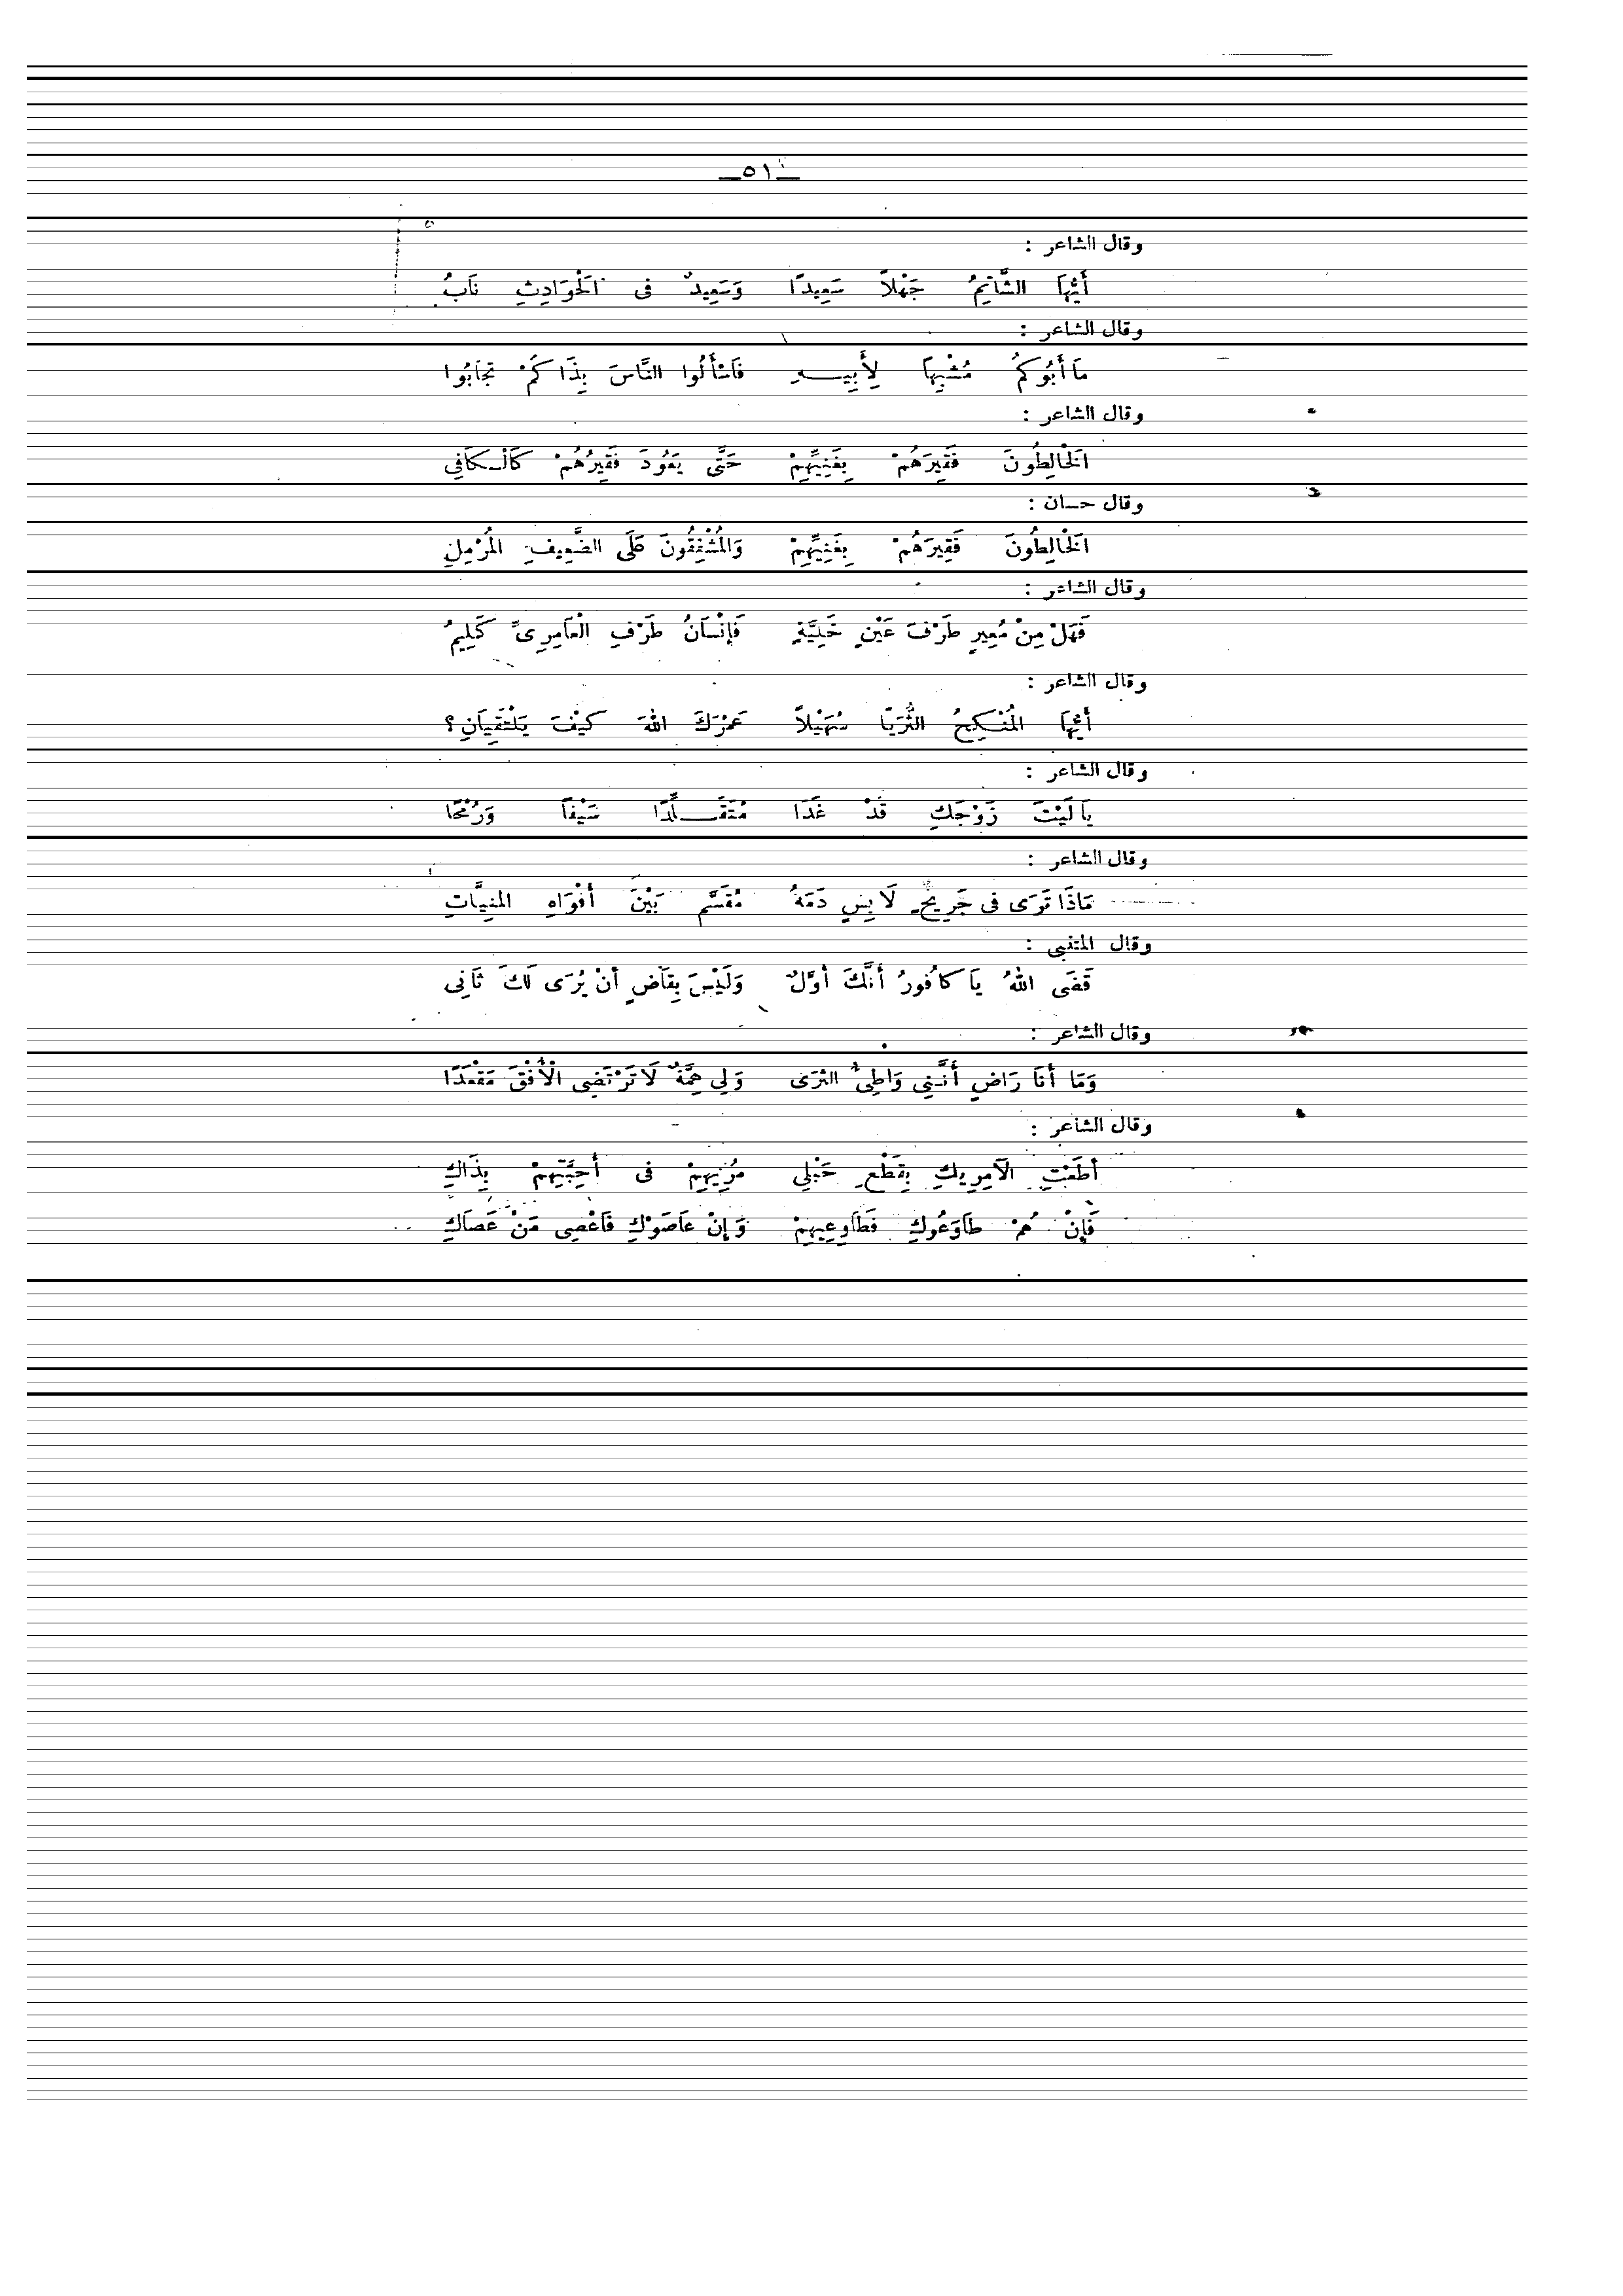 ـ٥١ـ
وقال الشاعر :
أَيُّهَا الشَّاتِمُ جَهْلاً سَعِيدًا وَسَعِيدٌ فى الْحَوَادِثِ نَابُ
وقال الشاعر :
مَا أَبُوكُمُ مُشْبِهاَ لِأَبِيـهِ فَاسْأَلُوا النَّاسَ بِذَاكُمْ تُجَابُوا
وقال الشاعر :
الْخَالِطُونَ فَقِيرَهُمْ بِغَنِيِّهِمْ حَتَّى يَعُودَ فَقِيرُهُمْ كَالْـكَافِى
وقال حسان :
الْخَالِطُونَ فَقِيرَهُمْ بِغَنِيِّهِمْ وَالْمُشْفِقُونَ عَلَى الضَّعِيفِ الْمُرْمِلِ
وقال الشاعر :
فَهَلْ مِنْ مُعِيرٍ طَرْفَ عَيْنٍ خَلِيَّةٍ فَإِنْسَانُ طَرْفِ الْعَامِرِىِّ كَلِيمُ
وقال الشاعر :
أَيُّهَا الْمُنْـكِحُ الثُّرَيَّا سُهَيْلاً عَمْرَكَ اللهَ كَيْفَ يَلْتَقِيَانِ؟
وقال الشاعر :
يَا لَيْتَ زَوْجَكِ قَدْ غَدَا مُتَقَـلِّدًا سَيْفاً وَرُمْحًا
وقال الشاعر :
مَاذَا تَرَى فى جَرِيحٍ لَابِسٍ دَمَهُ مُقَسَّمٍ بَيْنَ أفْوَاهِ المنِيَّاتِ
وقال المتنبى :
قَضَى اللهُ يَا كَافُورُ أَنَّكَ أوَّلٌ وَلَيْسَ بِقَاضٍ أنْ يُرَى لَكَ ثَانِى
وقال الشاعر :
وَمَا أَنَا رَاضٍ أَنَّـنِى وَاطِىُّ الثرَى وَلِى هِمَّةٌ لَا تَرْتَضِى الْأُفْقَ مَقْعَدًا
وقال الشاعر :
أطَعْتِ الْآمِرِيكِ بِقَطْعِ حَبْلِى مُرِيهِمْ فى أَحِبَّتِهِمْ بِذَاكِ
فَإِنْ هُمْ طَاوَعُوكِ فَطَاوِعِيهِمْ وَإِنْ عَاصَوْكِ فَاعْصِى مَنْ عَصَاكِ